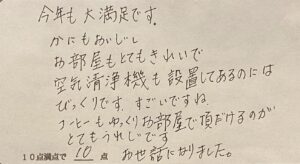 今年も大満足です。
かにもおいしい
お部屋もとてもきれいで
空気清浄機も設置してあるのには
びっくりです。すごいですね。
コーヒーもゆっくりお部屋で頂けるのが
とてもうれしいです
10点満点で 10 点 お世話になりました。